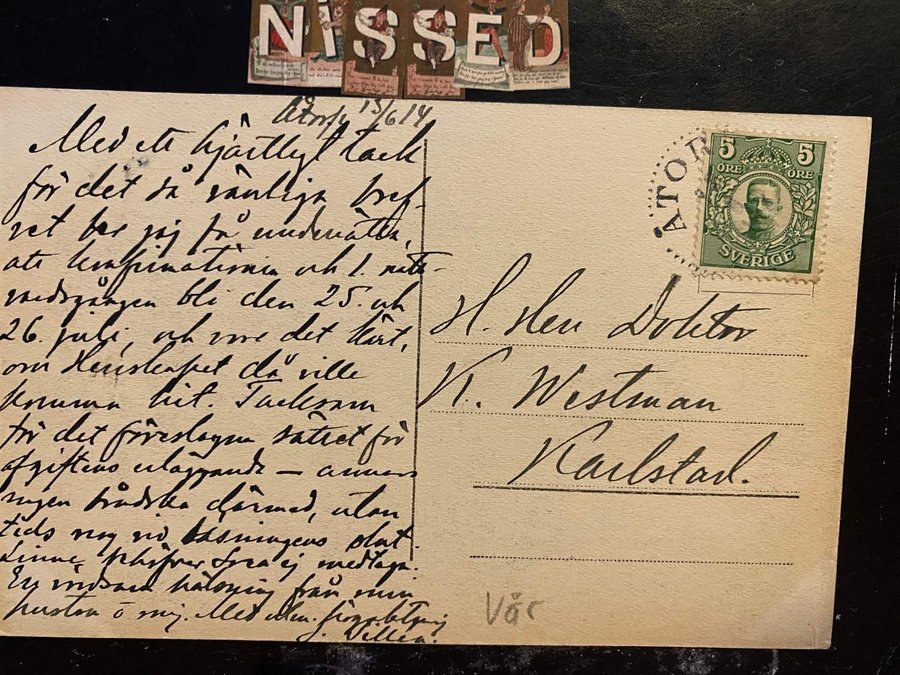 NISSED
Åtorp 15/6 14
Med ett hjärtligt tack
för det så vänliga bref-
vet ber jag få underrätta,
att konfirmationen och 1. natt-
vardsgången bli den 25. och
26. juli, och vore det kärt,
om Herrskapet då ville
komma hit. Tacksam
för det föreslagna sättet för
afgiftens erläggande — annars
ingen brådska därmed, utan
tids nog vid läsningens slut.
Linne behöfver Svea ej medtaga.
En vördsam hälsning från min
hustru o. mig. Med utm. högaktning
J.
ÅTOR
5 5
ÖRE ÖRE
SVERIGE
H. Herr Doktor
K. Westman
Karlstad.
Vår